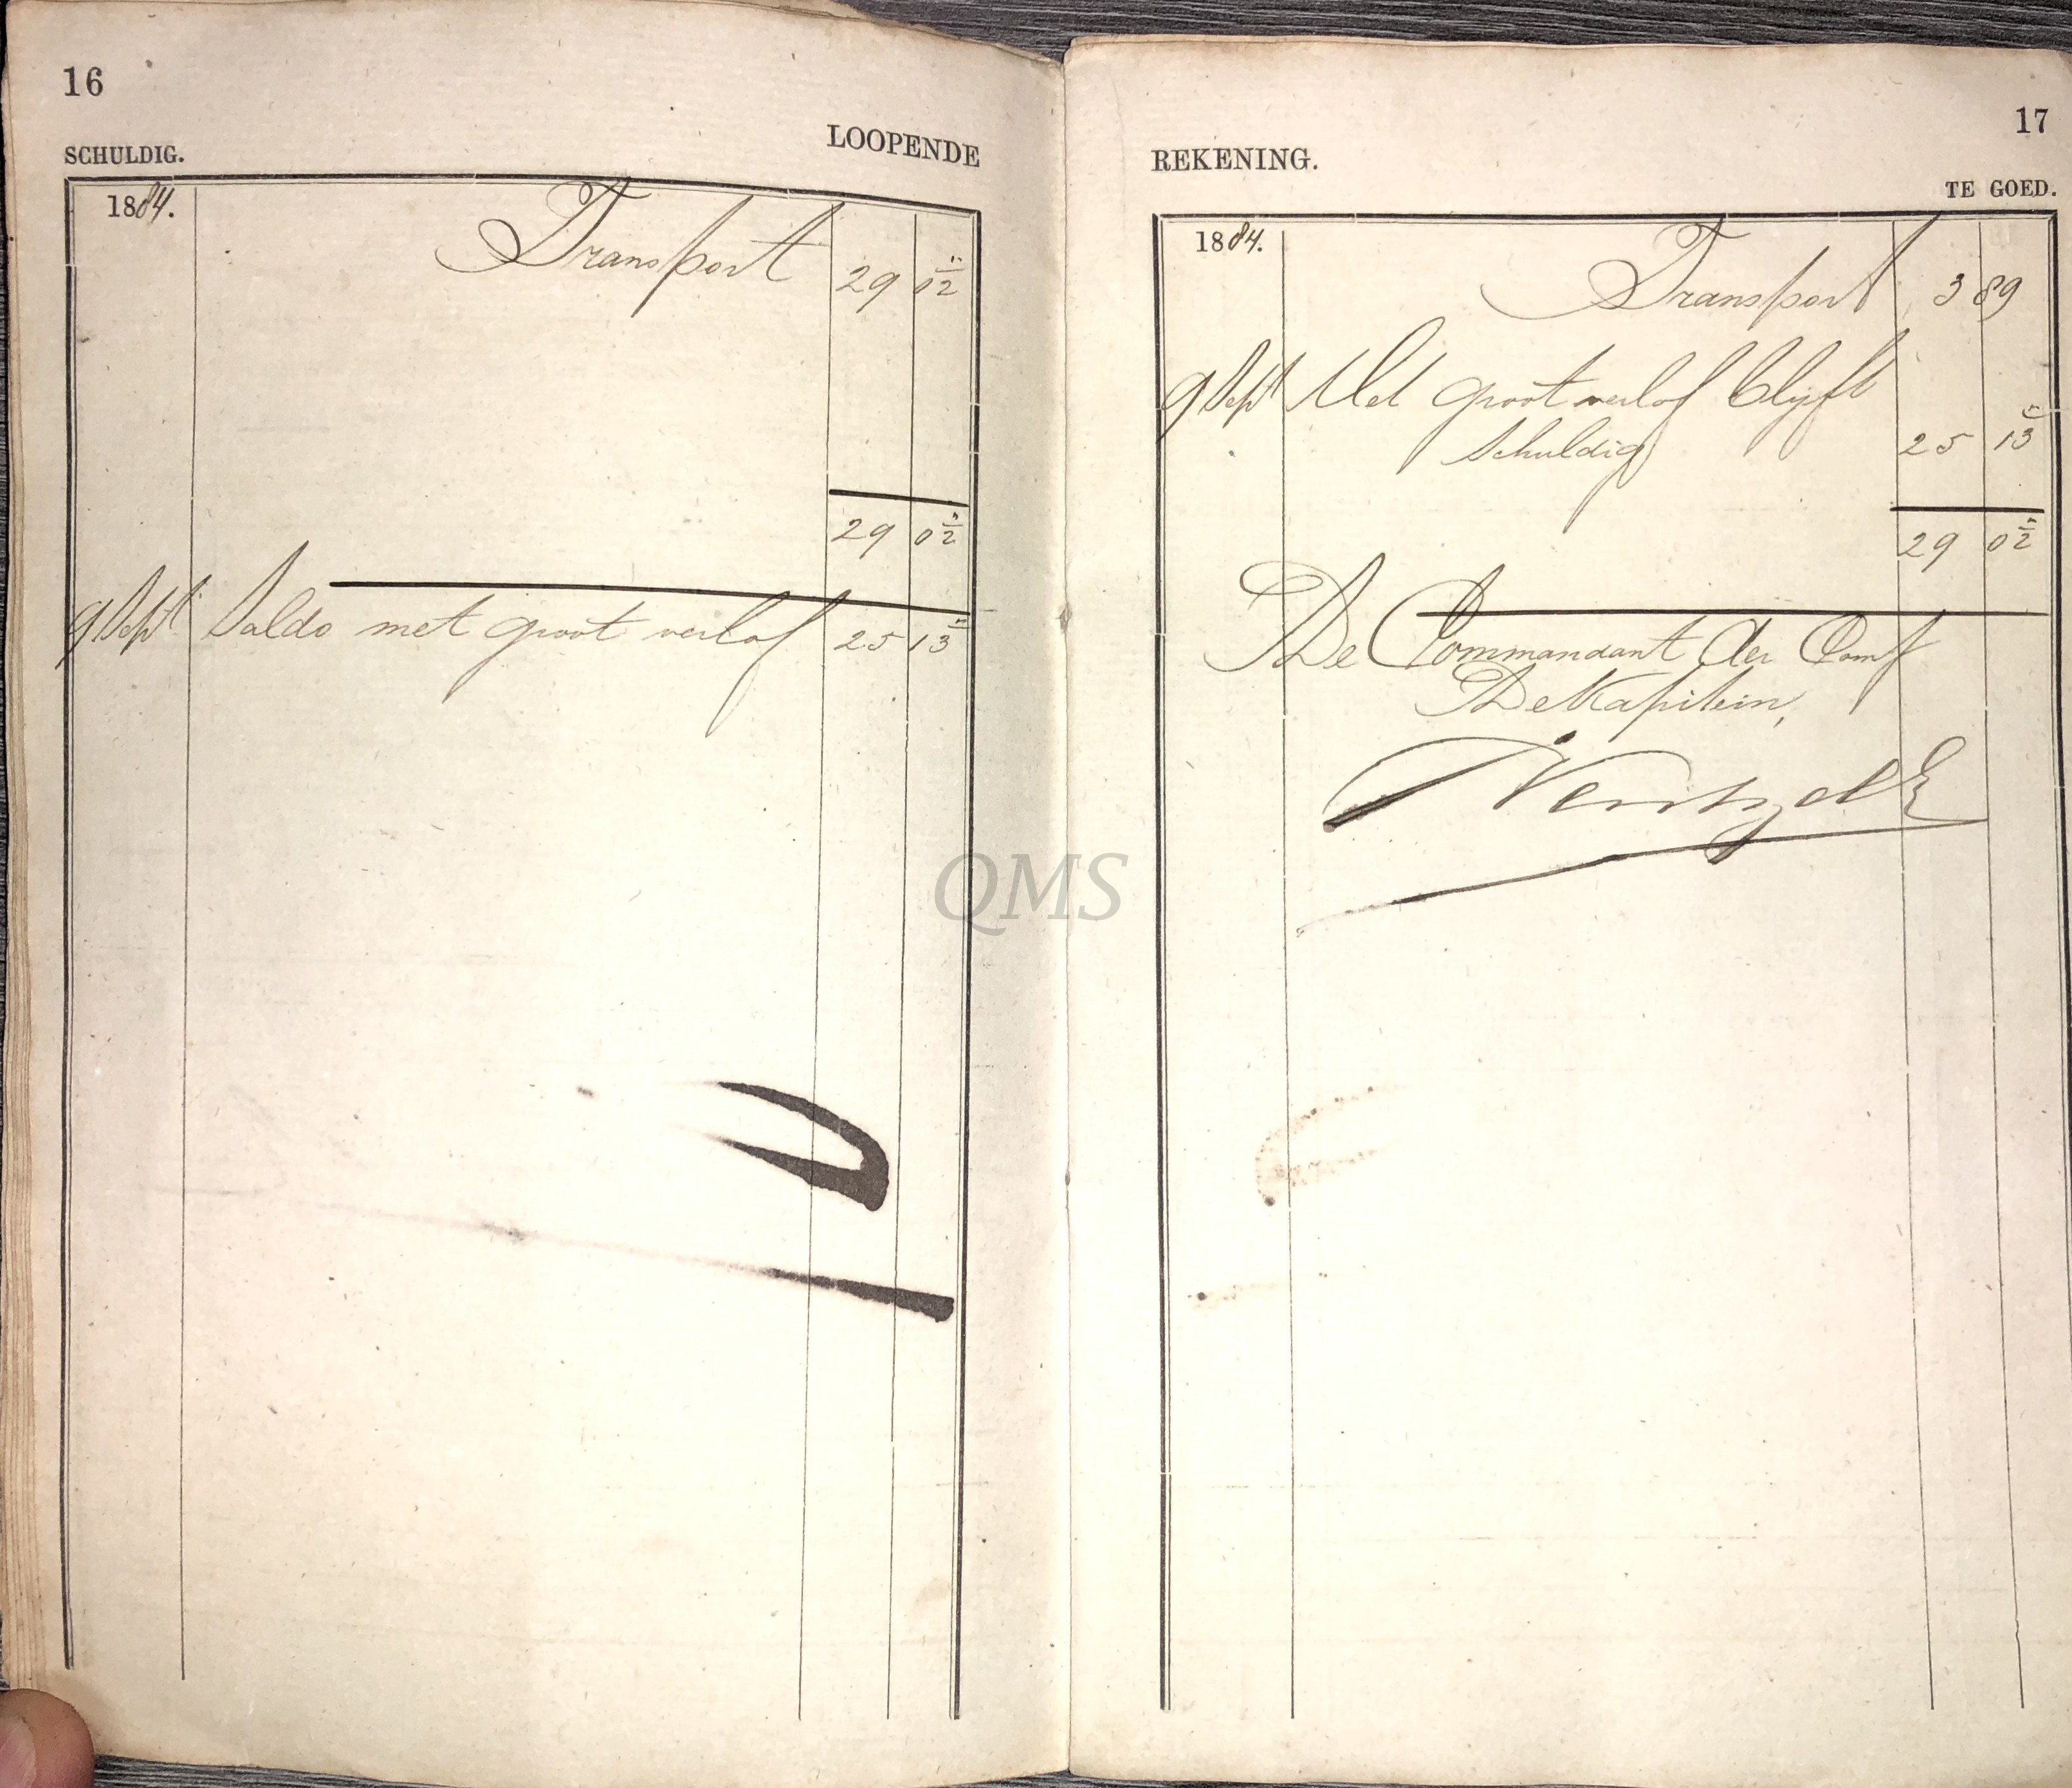 16
LOOPENDE
SCHULDIG.
1884.
Transport 29 02
29 02
9 Sept Saldo met groot verlof 25 13
17
REKENING.
TE GOED.
1884.
Transport 3 89
9 Sept Met groot verlof blijft
schuldig 25 13
29 02
De Commandant der Comp
De Kapitein,
QMS